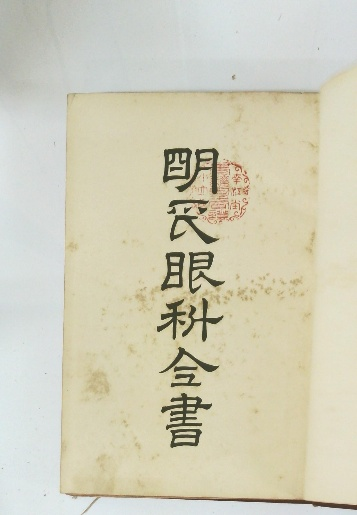 明氏眼科全書